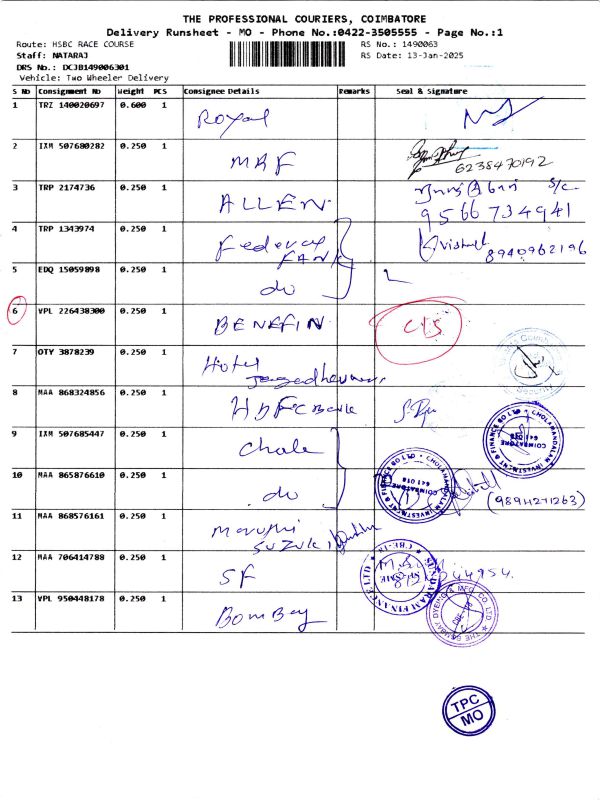 THE PROFESSIONAL COURIERS, COIMBATORE
Delivery Runsheet - MO - Phone No.:0422-3505555 - Page No.:1
Route: HSBC RACE COURSE RS No.: 1490063
Staff: NATARAJ RS Date: 13-Jan-2025
DRS No.: DCJB149006301
Vehicle: Two Wheeler Delivery
S No Consignment No Weight PCS Consignee Details Remarks Seal & Signature
1 TRZ 140020697 0.600 1 Royal
2 IXM 507680282 0.250 1 MRF 6238470192
3 TRP 2174736 0.250 1 ALLEN S/c
9566 734941
4 TRP 1343974 0.250 1 Federal 8940962196
5 EDQ 15059898 0.250 1 do
6 VPL 226438300 0.250 1 BENEFIN
7 OTY 3878239 0.250 1 Hotel
8 MAA 868324856 0.250 1 HDFC Bank
9 IXM 507685447 0.250 1 Chola
CHOLAMANDALAM INVESTMENT & FINANCE CO LTD
COIMBATORE
641 018
10 MAA 865876610 0.250 1 do (9894271263)
CHOLAMANDALAM INVESTMENT & FINANCE CO LTD
COIMBATORE
641 018
11 MAA 868576161 0.250 1 Maruthi
SUZUKI
12 MAA 706414788 0.250 1 SF
SUNDARAM FINANCE LTD
CBE-18
13 VPL 950448178 0.250 1 Bombay
THE BOMBAY DYEING & MFG. CO. LTD.
TPC
MO